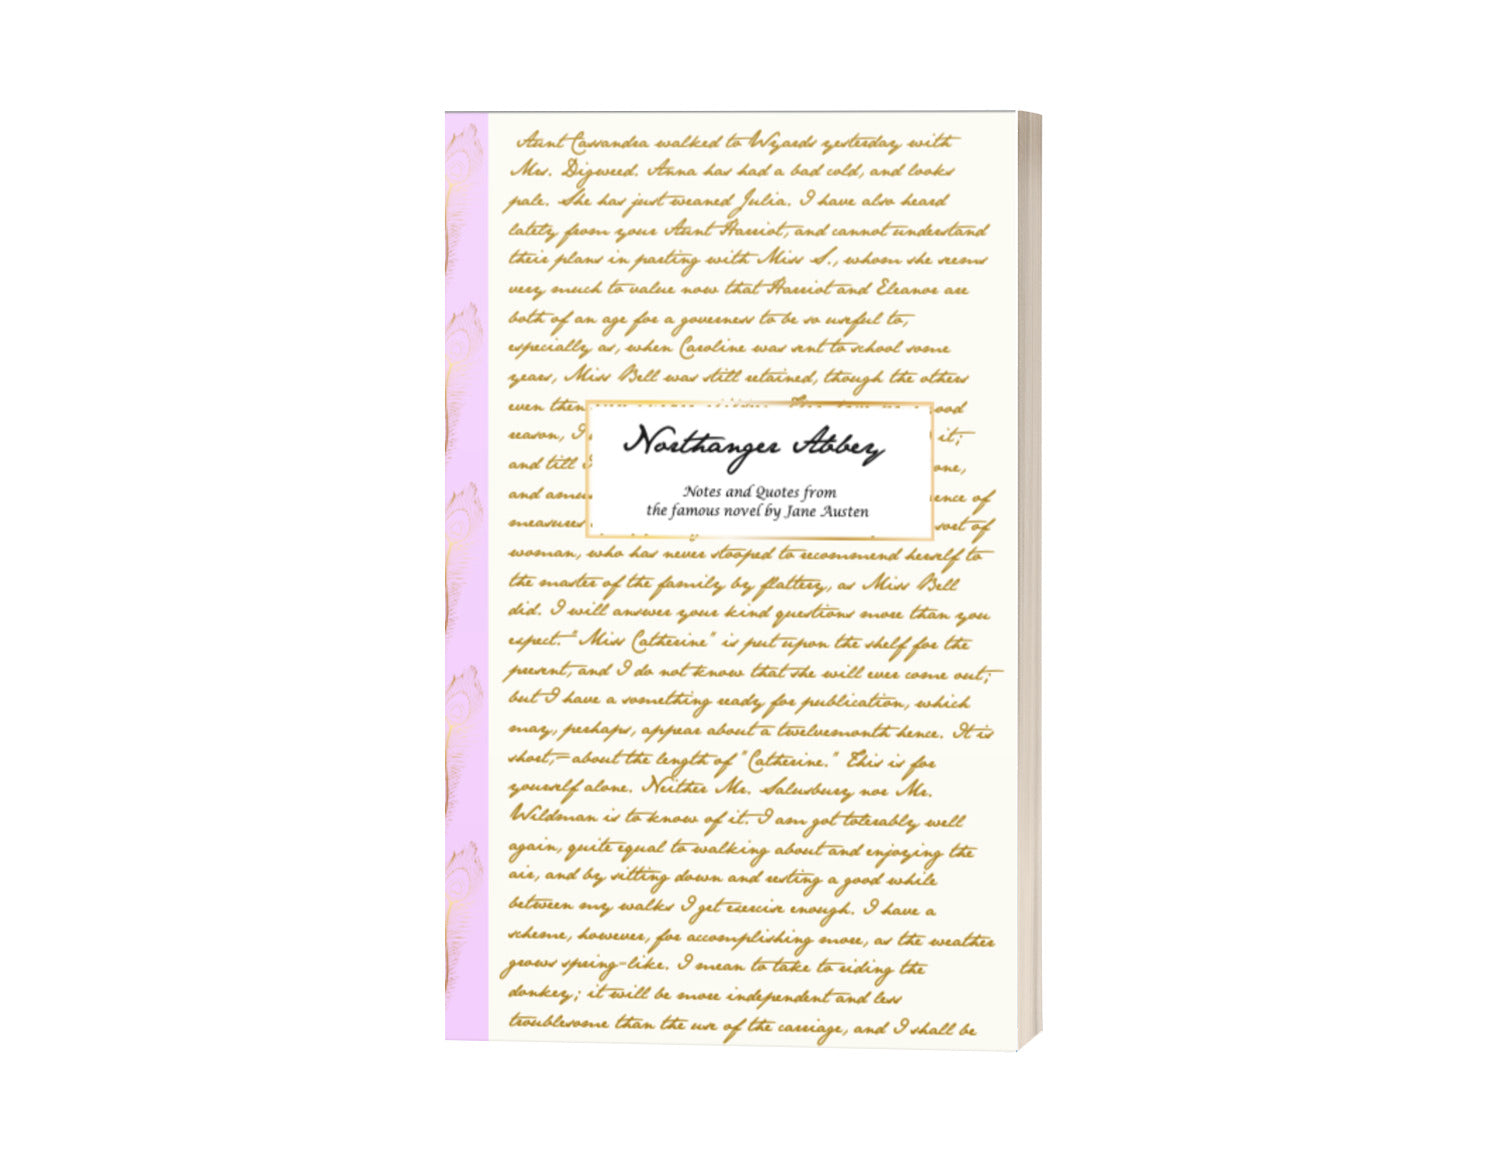 Aunt Cassandra walked to Wyards yesterday with
Mrs. Digweed. Anna has had a bad cold, and looks
pale. She has just weaned Julia. I have also heard
lately from your Aunt Harriot, and cannot understand
their plans in parting with Miss S., whom she seems
very much to value now that Harriot and Eleanor are
both of an age for a governess to be so useful to,
especially as, when Caroline was sent to school some
years, Miss Bell was still retained, though the others
even then
reason, I
it;
and till
and
measures
sort of
Northanger Abbey
Notes and Quotes from
the famous novel by Jane Austen
woman, who has never stooped to recommend herself to
the master of the family by flattery, as Miss Bell
did. I will answer your kind questions more than you
expect. "Miss Catherine" is put upon the shelf for the
present, and I do not know that she will ever come out;
but I have a something ready for publication, which
may, perhaps, appear about a twelvemonth hence. It is
short,—about the length of "Catherine." This is for
yourself alone. Neither Mr. Salusbury nor Mr.
Wildman is to know of it. I am got tolerably well
again, quite equal to walking about and enjoying the
air, and by sitting down and resting a good while
between my walks I get exercise enough. I have a
scheme, however, for accomplishing more, as the weather
grows spring-like. I mean to take to riding the
donkey; it will be more independent and less
troublesome than the use of the carriage, and I shall be